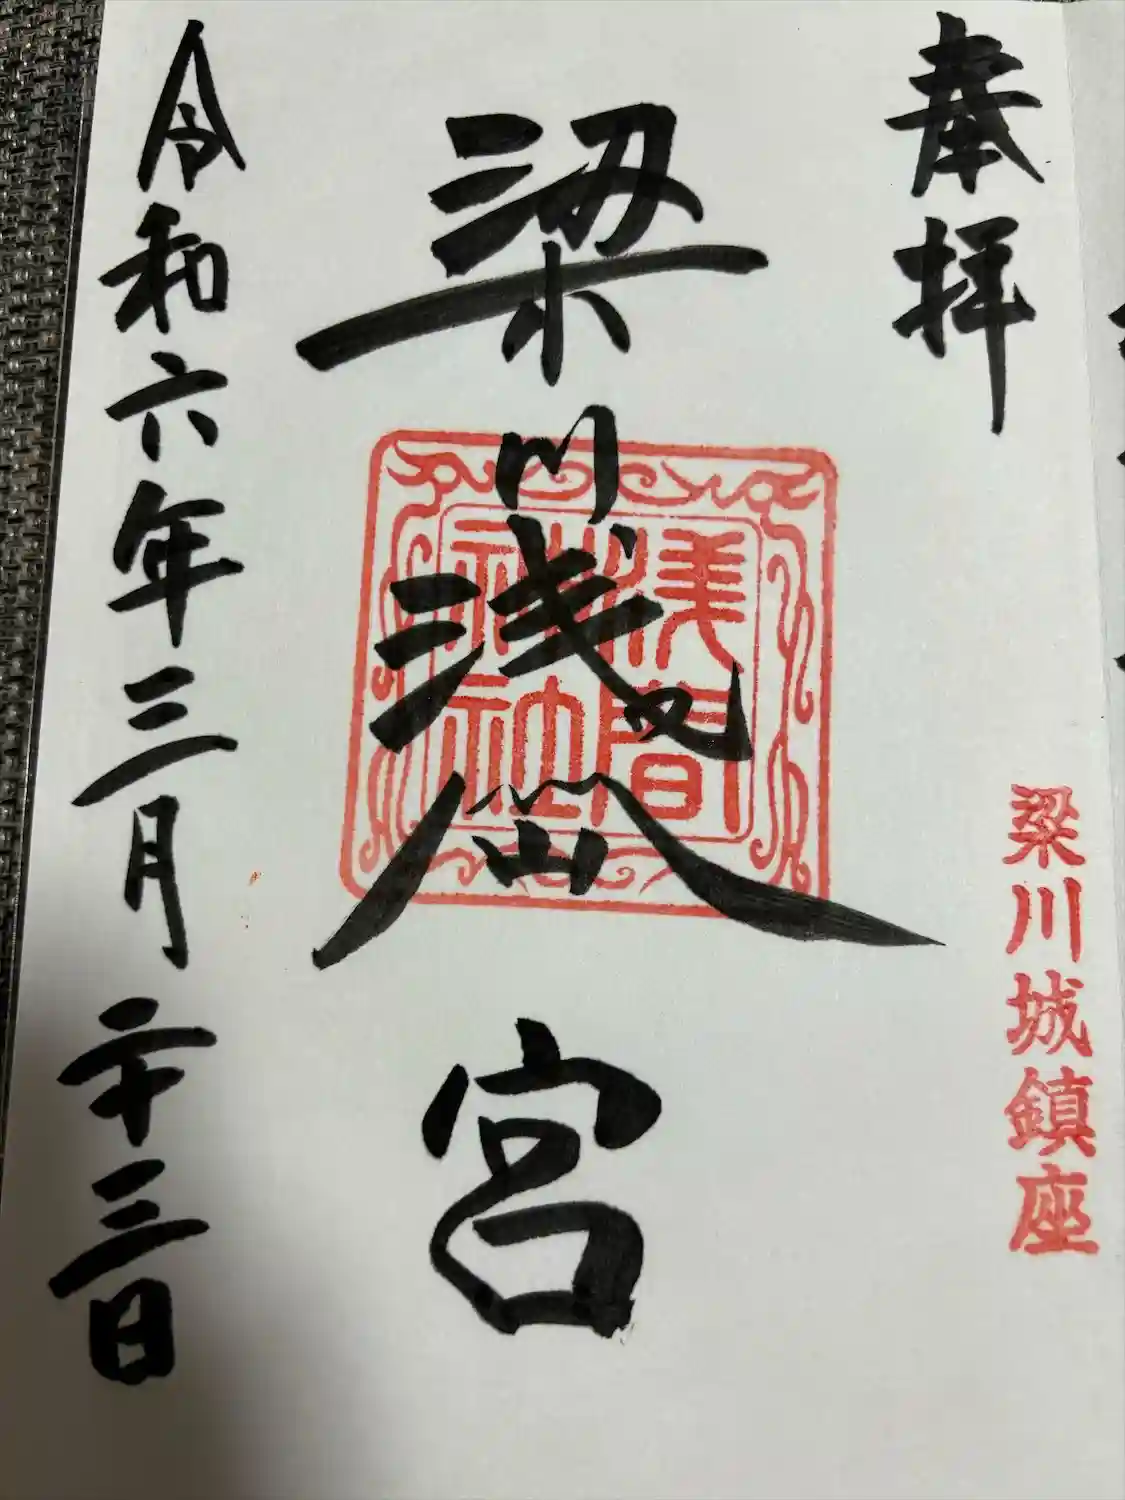 奉拝
梁川城鎮座
梁川浅宮
淺間
神社
令和六年三月二十三日